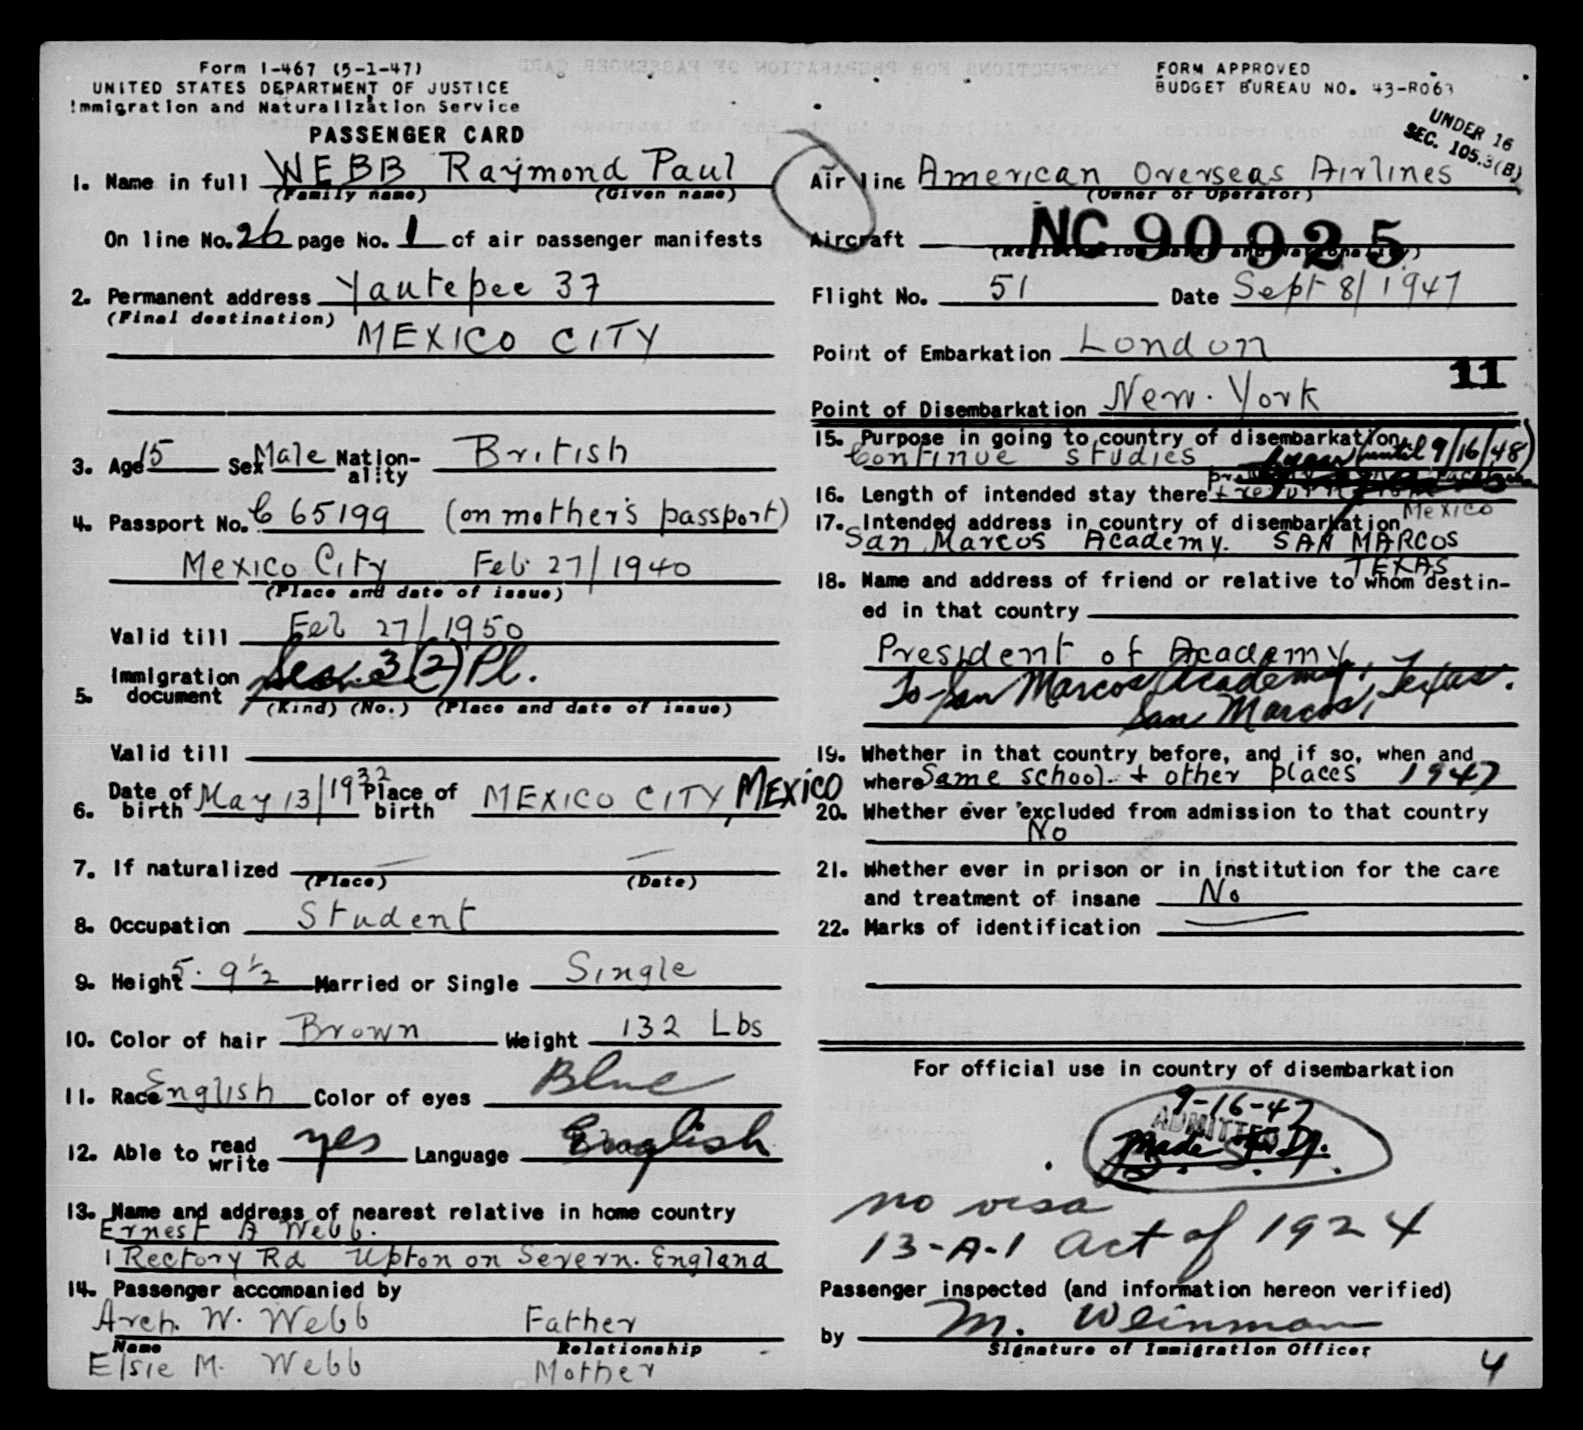 Form I-467 (5-1-47)
UNITED STATES DEPARTMENT OF JUSTICE
Immigration and Naturalization Service
PASSENGER CARD
1. Name in full WEBB Raymond Paul
(Family name) (Given name)
On line No. 26 page No. 1 of air passenger manifests
2. Permanent address Yautepec 37
(Final destination) MEXICO CITY
3. Age 15 Sex Male Nation-ality British
4. Passport No. C 65199 (on mother's passport)
Mexico City Feb. 27/1940
(Place and date of issue)
Valid till Feb 27/1950
5. Immigration document Sec. 3 (2) Pl.
(Kind) (No.) (Place and date of issue)
Valid till
6. Date of birth May 13/1932 Place of birth MEXICO CITY, MEXICO
7. If naturalized — —
(Place) (Date)
8. Occupation Student
9. Height 5. 9 1/2 Married or Single Single
10. Color of hair Brown Weight 132 Lbs
11. Race English Color of eyes Blue
12. Able to read write yes Language English
13. Name and address of nearest relative in home country
Ernest A Webb.
1 Rectory Rd Upton on Severn. England
14. Passenger accompanied by
Arch. W. Webb Father
Name Relationship
Elsie M. Webb Mother
FORM APPROVED
BUDGET BUREAU NO. 43-R063
UNDER 16
SEC. 105.3(B)
Air line American Overseas Airlines
(Owner or Operator)
Aircraft NC 90925
Flight No. 51 Date Sept 8/1947
Point of Embarkation London
11
Point of Disembarkation New York
15. Purpose in going to country of disembarkation
Continue studies 1 year (until 9/16/48)
16. Length of intended stay there + return from Mexico
17. Intended address in country of disembarkation
San Marcos Academy. SAN MARCOS
TEXAS
18. Name and address of friend or relative to whom destin-
ed in that country
President of Academy
To San Marcos Academy, Texas.
San Marcos,
19. Whether in that country before, and if so, when and
where Same school + other places 1947
20. Whether ever excluded from admission to that country
No
21. Whether ever in prison or in institution for the care
and treatment of insane No
22. Marks of identification —
For official use in country of disembarkation
9-16-47
ADMITTED
no visa
13-A-1 Act of 1924
Passenger inspected (and information hereon verified)
by M. Weinman
Signature of Immigration Officer
4